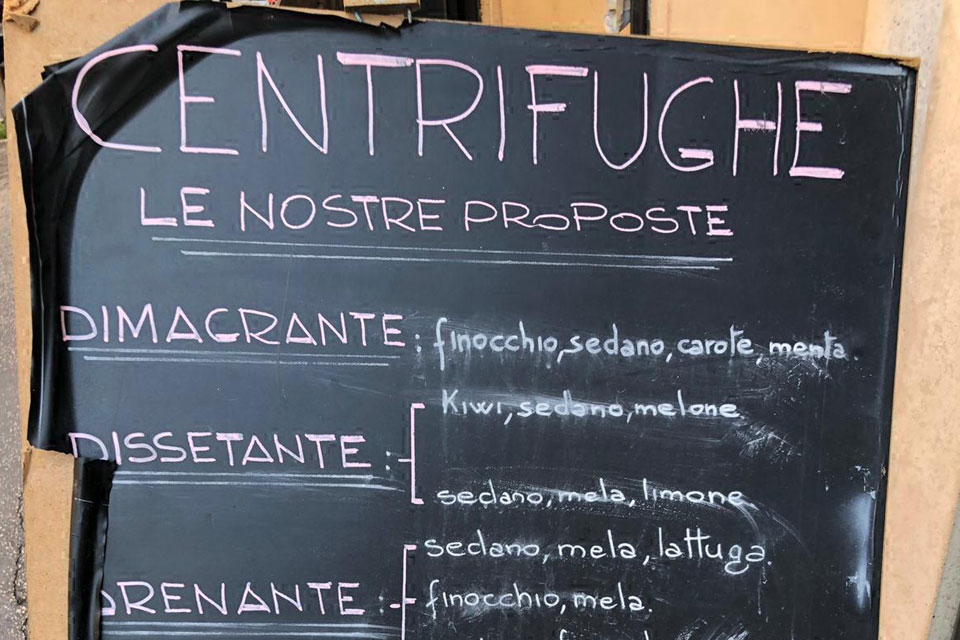 CENTRIFUGHE
LE NOSTRE PROPOSTE
DIMAGRANTE: finocchio, sedano, carote, menta.
Kiwi, sedano, melone.
DISSETANTE:
sedano, mela, limone
sedano, mela, lattuga.
DRENANTE: finocchio, mela.